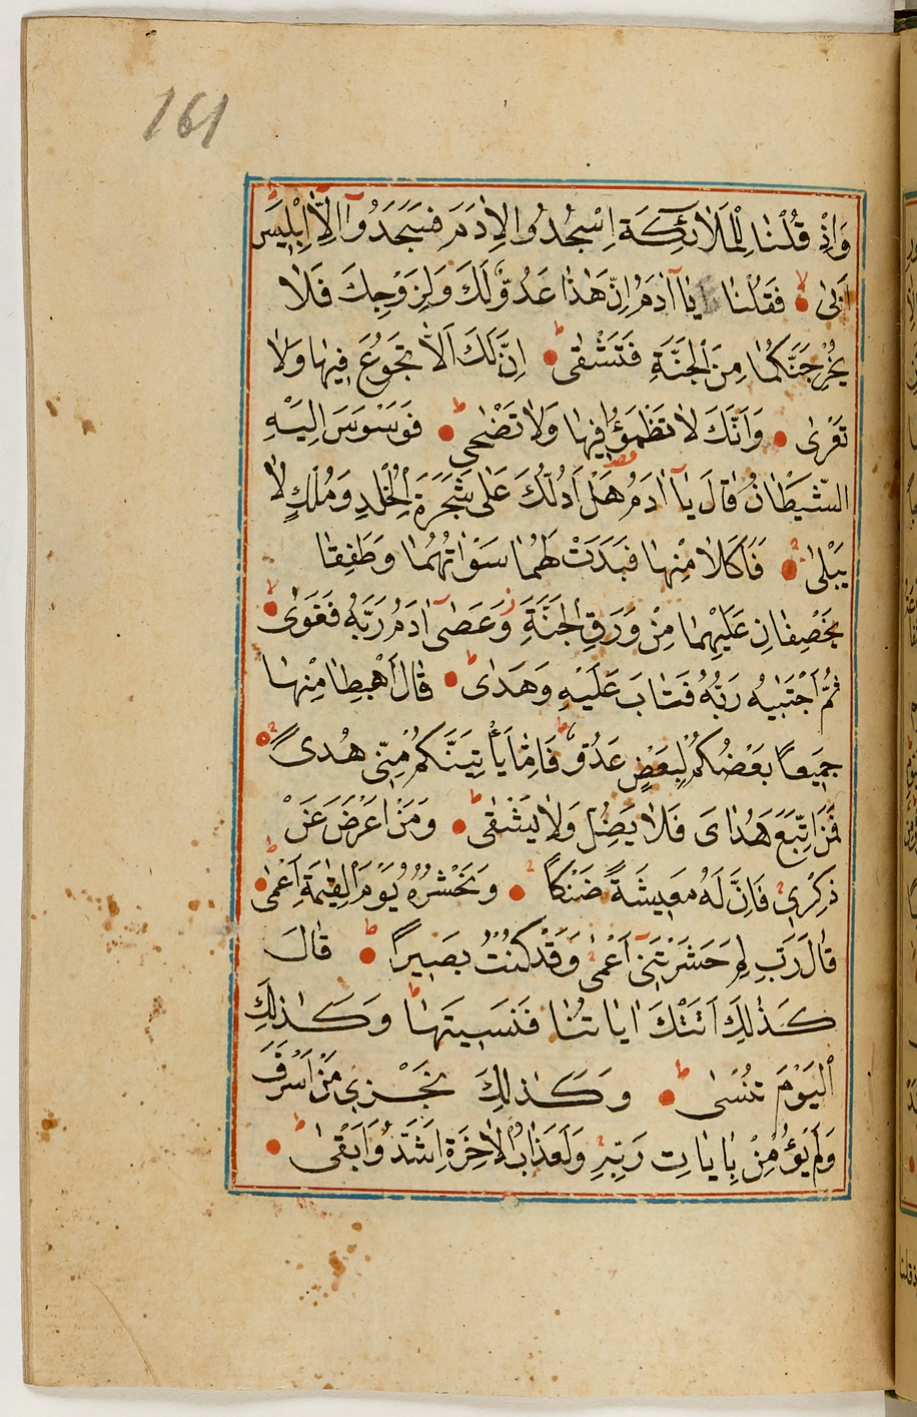 161
وَاِذْ قُلْنَا لِلْمَلٰٓائِكَةِ اسْجُدُوا لِاٰدَمَ فَسَجَدُٓوا اِلَّٓا اِبْلِيسَ
اَبٰى فَقُلْنَا يَٓا اٰدَمُ اِنَّ هٰذَا عَدُوٌّ لَكَ وَلِزَوْجِكَ فَلَا
يُخْرِجَنَّكُمَا مِنَ الْجَنَّةِ فَتَشْقٰى اِنَّ لَكَ اَلَّا تَجُوعَ فِيهَا وَلَا
تَعْرٰى وَاَنَّكَ لَا تَظْمَؤُا فِيهَا وَلَا تَضْحٰى فَوَسْوَسَ اِلَيْهِ
الشَّيْطَانُ قَالَ يَٓا اٰدَمُ هَلْ اَدُلُّكَ عَلٰى شَجَرَةِ الْخُلْدِ وَمُلْكٍ لَا
يَبْلٰى فَاَكَلَا مِنْهَا فَبَدَتْ لَهُمَا سَوْاٰتُهُمَا وَطَفِقَا
يَخْصِفَانِ عَلَيْهِمَا مِنْ وَرَقِ الْجَنَّةِ وَعَصٰٓى اٰدَمُ رَبَّهُ فَغَوٰى
ثُمَّ اجْتَبٰيهُ رَبُّهُ فَتَابَ عَلَيْهِ وَهَدٰى قَالَ اهْبِطَا مِنْهَا
جَمِيعًا بَعْضُكُمْ لِبَعْضٍ عَدُوٌّ فَاِمَّا يَأْتِيَنَّكُمْ مِنِّى هُدًى
فَمَنِ اتَّبَعَ هُدَاىَ فَلَا يَضِلُّ وَلَا يَشْقٰى وَمَنْ اَعْرَضَ عَنْ
ذِكْرِى فَاِنَّ لَهُ مَعِيشَةً ضَنْكًا وَنَحْشُرُهُ يَوْمَ الْقِيٰمَةِ اَعْمٰى
قَالَ رَبِّ لِمَ حَشَرْتَنِٓى اَعْمٰى وَقَدْ كُنْتُ بَصِيرًا قَالَ
كَذٰلِكَ اَتَتْكَ اٰيَاتُنَا فَنَسِيتَهَا وَكَذٰلِكَ
الْيَوْمَ تُنْسٰى وَكَذٰلِكَ نَجْزِى مَنْ اَسْرَفَ
وَلَمْ يُؤْمِنْ بِاٰيَاتِ رَبِّهِ وَلَعَذَابُ الْاٰخِرَةِ اَشَدُّ وَاَبْقٰى